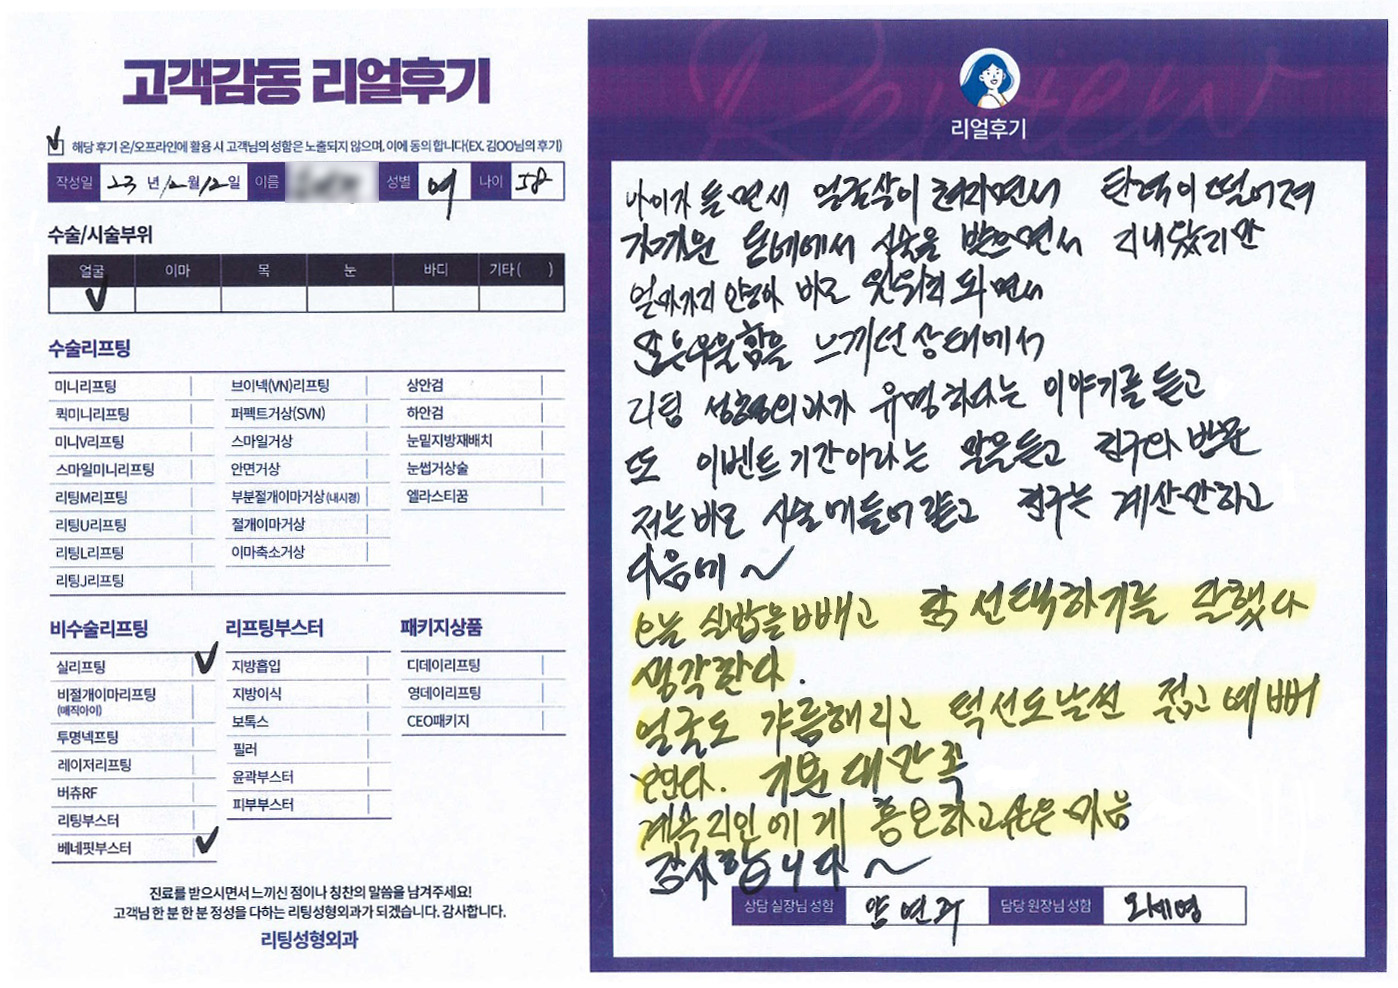 고객감동 리얼후기
해당 후기 온/오프라인에 활용 시 고객님의 성함은 노출되지 않으며, 이에 동의 합니다(EX. 김OO님의 후기)
작성일 23 년 12 월 12 일 이름 성별 여 나이 58
수술/시술부위
얼굴 이마 목 눈 바디 기타( )
수술리프팅
미니리프팅
퀵미니리프팅
미니V리프팅
스마일미니리프팅
리팅M리프팅
리팅U리프팅
리팅L리프팅
리팅J리프팅
브이넥(VN)리프팅
퍼펙트거상(SVN)
스마일거상
안면거상
부분절개이마거상 (내시경)
절개이마거상
이마축소거상
상안검
하안검
눈밑지방재배치
눈썹거상술
엘라스티꿈
비수술리프팅
실리프팅
비절개이마리프팅
(매직아이)
투명넥프팅
레이저리프팅
버츄RF
리팅부스터
베네핏부스터
리프팅부스터
지방흡입
지방이식
보톡스
필러
윤곽부스터
피부부스터
패키지상품
디데이리프팅
영데이리프팅
CEO패키지
진료를 받으시면서 느끼신 점이나 칭찬의 말씀을 남겨주세요!
고객님 한 분 한 분 정성을 다하는 리팅성형외과가 되겠습니다. 감사합니다.
리팅성형외과
Review
리얼후기
나이가 들면서 얼굴살이 쳐지면서 탄력이 떨어져
가까운 동네에서 시술을 받으면서 지내왔지만
얼마가지 않아 바로 원위치 되면서
우울함을 느끼던 상태에서
리팅 성형외과가 유명하다는 이야기를 듣고
또 이벤트기간이라는 말을듣고 친구와 방문
저는 바로 시술에 들어갔고 친구는 계산만하고
다음에 ~
오늘 실밥을 빼고 참 선택하기를 잘했다
생각한다.
얼굴도 갸름해지고 턱선도 날씬 젊고 예뻐
졌다. 기분 대만족
계속 지인에게 홍보하고싶은 마음
감사합니다 ~
상담 실장님 성함 담당 원장님 성함